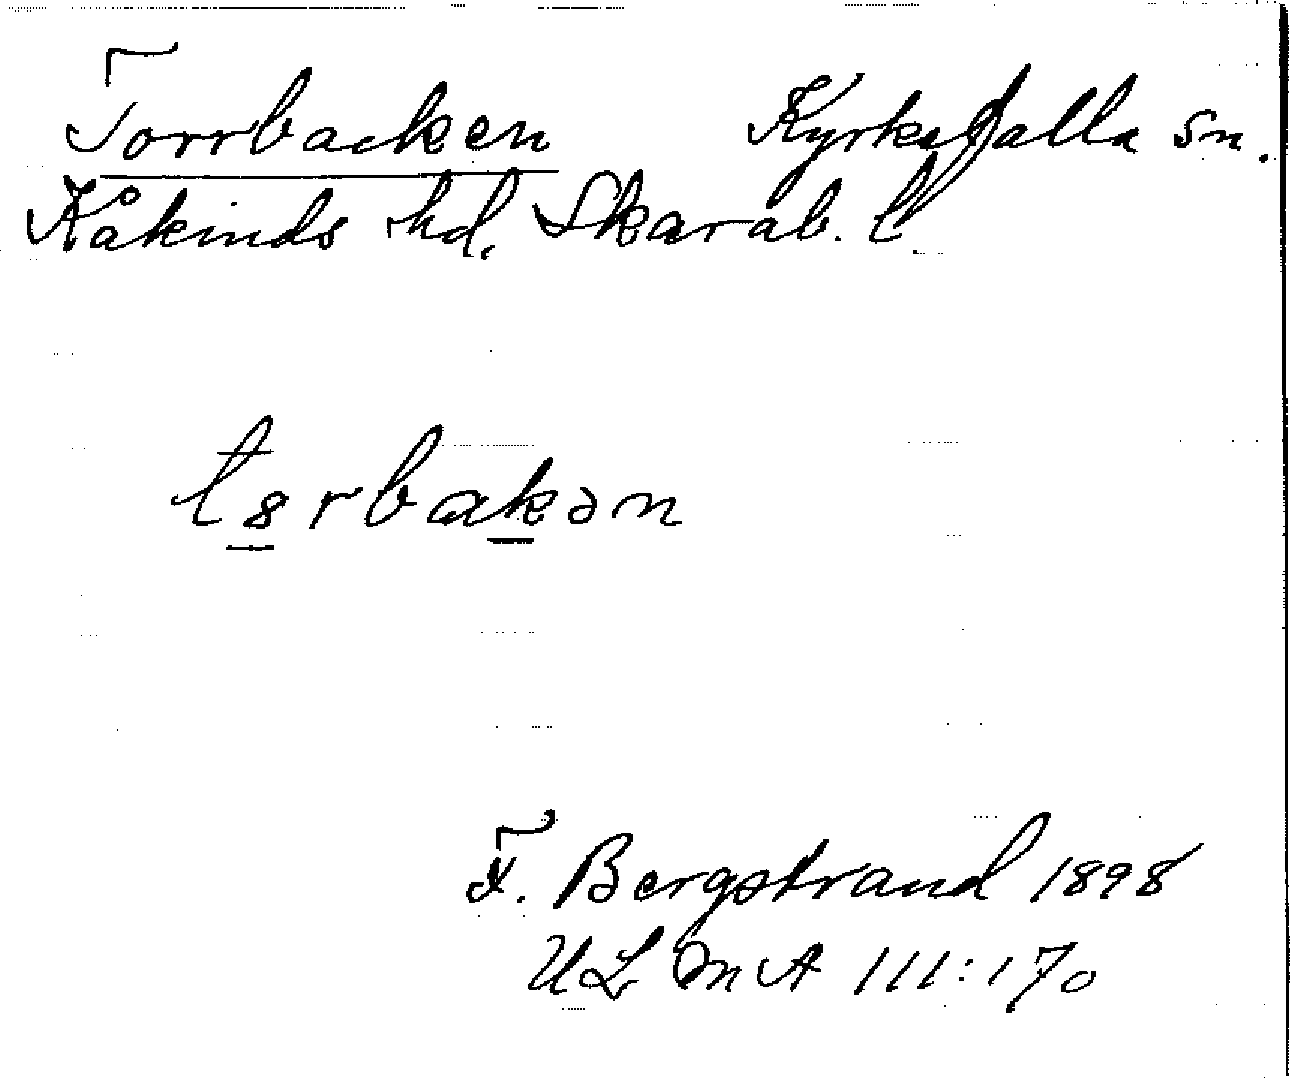 Torrbacken Kyrkefalla sn.
Kåkinds hd. Skarab. l.
t8rbakən
F. Bergstrand 1898
ULMA 111:170